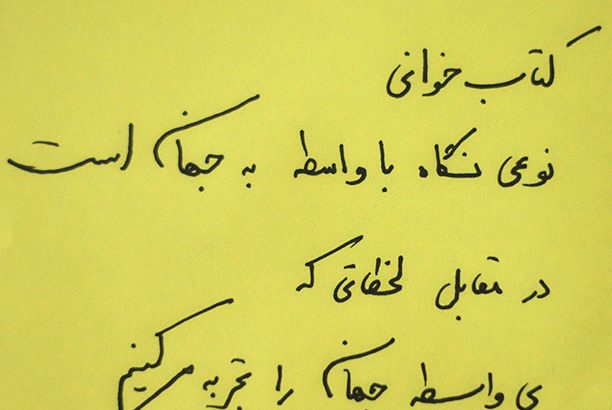 کتاب خوانی
نوعی نگاه با واسطه به جهان است
در تقابل لحظاتی که
بی واسطه جهان را تجربه می کنیم